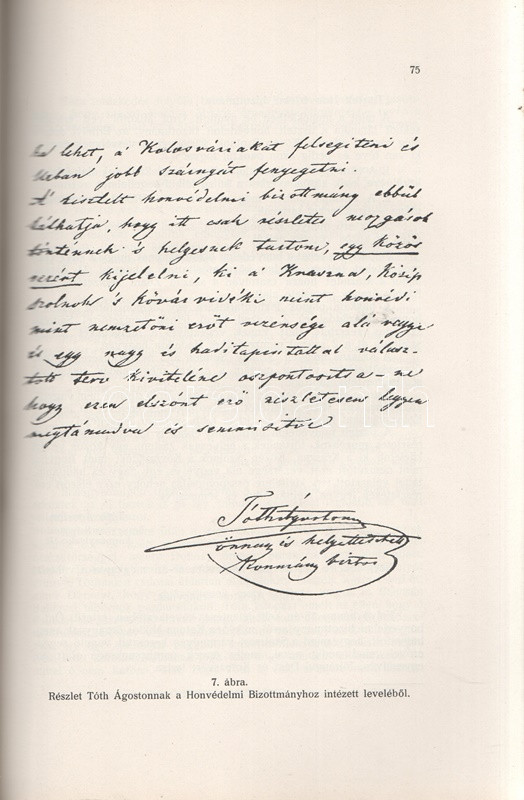 75
lehet, a' Kolosváriakat felsegiteni és
Urban jobb szárnyát fenyegetni.
A' tisztelt honvédelmi bizottmány ebbül
láthatja, hogy itt csak részletes mozgások
történnek 's helyesnek tartom, egy közös
vezért kijelelni, ki a' Kraszna, Közép
szolnok 's Kővár vidéki mint honvédi
mint nemzetőri erőt vezénsége alá vegye
és egy nagy és haditapintattal válasz-
tott terv kivitelére öszpontosítsa - ne
hogy ezen elszónt erő részletesen legyen
megtámadva és semmisitve
Tóth Ágoston
őrnagy és helyettesített
Kormány biztos
7. ábra.
Részlet Tóth Ágostonnak a Honvédelmi Bizottmányhoz intézett leveléből.